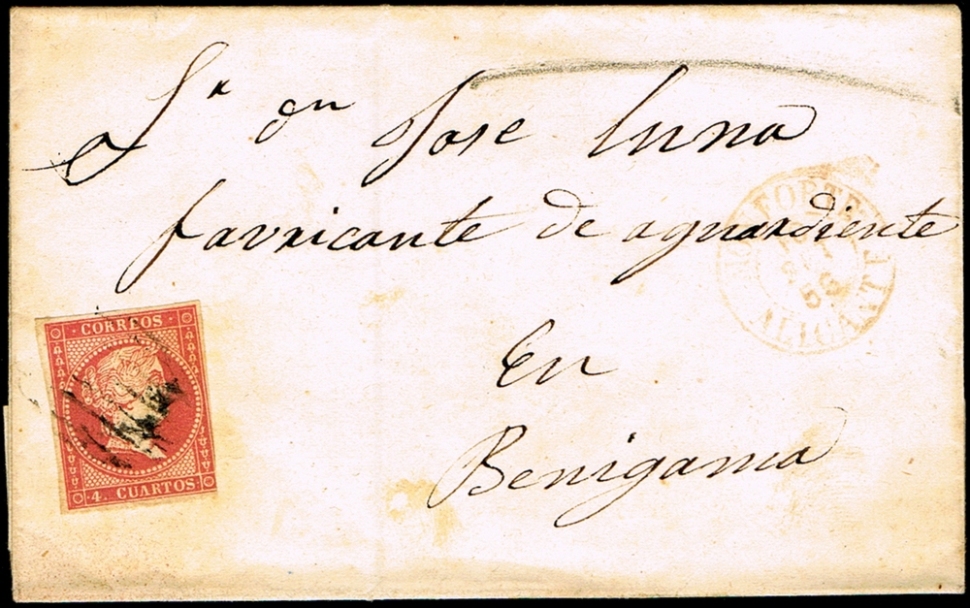 Sr dn Jose Luna
favricante de aguardiente
En
Benigama
CORREOS
4. CUARTOS
MONFORTE
56
ALICANTE